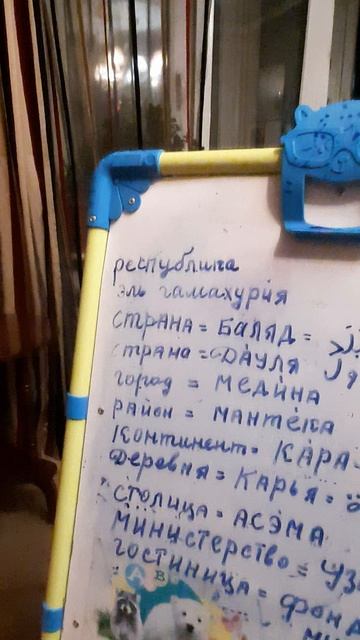 республика
эль гамахурия
СТРАНА = БАЛЯД =
страна = ДАУЛЯ
город = МЕДИНА
РАЙОН = МАНТЕКА
КОНТИНЕНТ = КАРА
Деревня = КАРЬЯ =
СТОЛИЦА = АСЭМА
МИНИСТЕРСТВО = УЗ
ГОСТИНИЦА = ФОН
А Б В